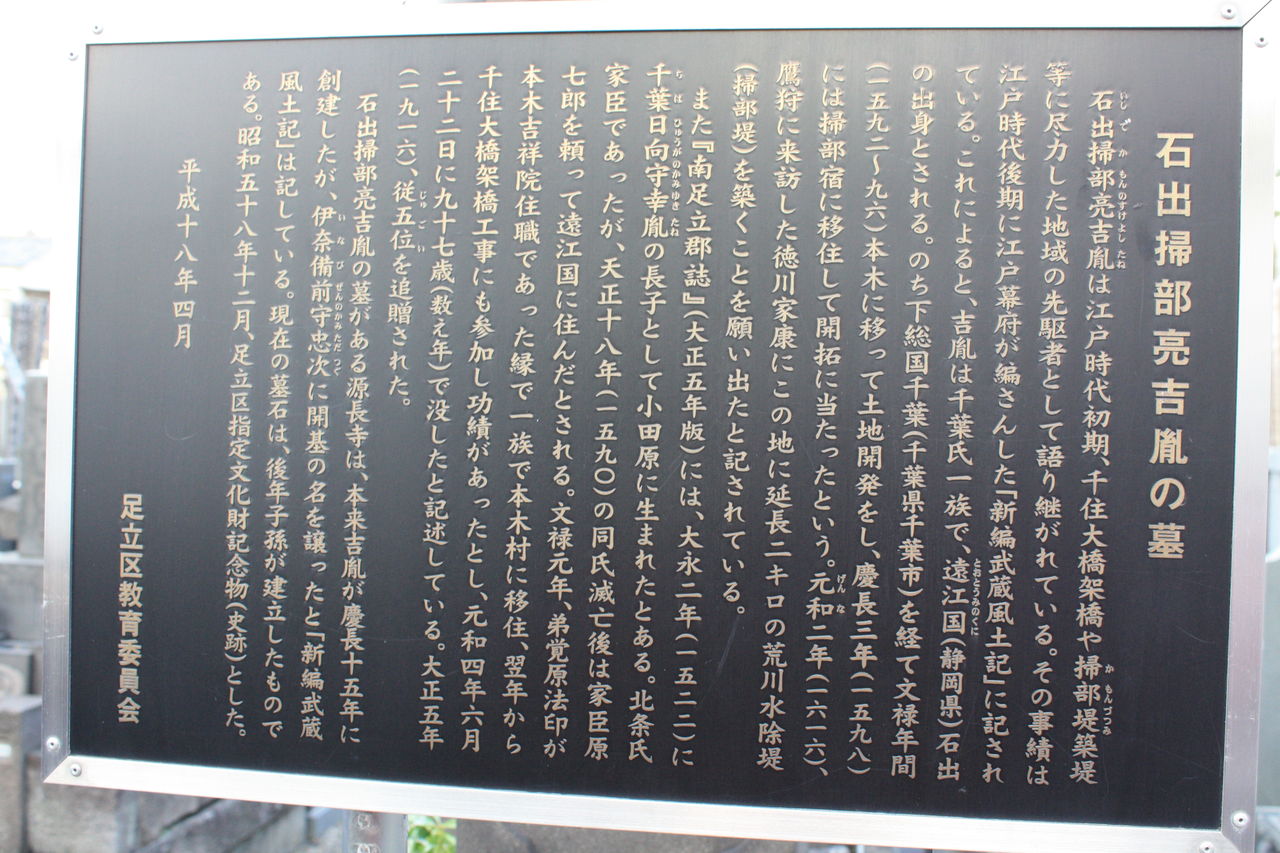 石出掃部亮吉胤の墓
石出掃部亮吉胤は江戸時代初期、千住大橋架橋や掃部堤築堤
等に尽力した地域の先駆者として語り継がれている。その事績は
江戸時代後期に江戸幕府が編さんした「新編武蔵風土記」に記され
ている。これによると、吉胤は千葉氏一族で、遠江国(静岡県)石出
の出身とされる。のち下総国千葉(千葉県千葉市)を経て文禄年間
(一五九二～九六)本木に移って土地開発をし、慶長三年(一五九八)
には掃部宿に移住して開拓に当たったという。元和二年(一六一六)、
鷹狩に来訪した徳川家康にこの地に延長二キロの荒川水除堤
(掃部堤)を築くことを願い出たと記されている。
また『南足立郡誌』(大正五年版)には、大永二年(一五二二)に
千葉日向守幸胤の長子として小田原に生まれたとある。北条氏
家臣であったが、天正十八年(一五九〇)の同氏滅亡後は家臣原
七郎を頼って遠江国に住んだとされる。文禄元年、弟覚原法印が
本木吉祥院住職であった縁で一族で本木村に移住、翌年から
千住大橋架橋工事にも参加し功績があったとし、元和四年六月
二十二日に九十七歳(数え年)で没したと記述している。大正五年
(一九一六)、従五位を追贈された。
石出掃部亮吉胤の墓がある源長寺は、本来吉胤が慶長十五年に
創建したが、伊奈備前守忠次に開基の名を譲ったと「新編武蔵
風土記」は記している。現在の墓石は、後年子孫が建立したもので
ある。昭和五十八年十二月、足立区指定文化財記念物(史跡)とした。
平成十八年四月
足立区教育委員会